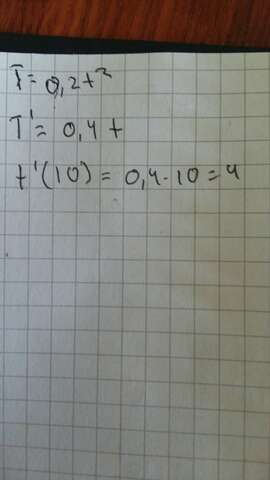 T = 0,2t²
T' = 0,4 t
t'(10) = 0,4 · 10 = 4